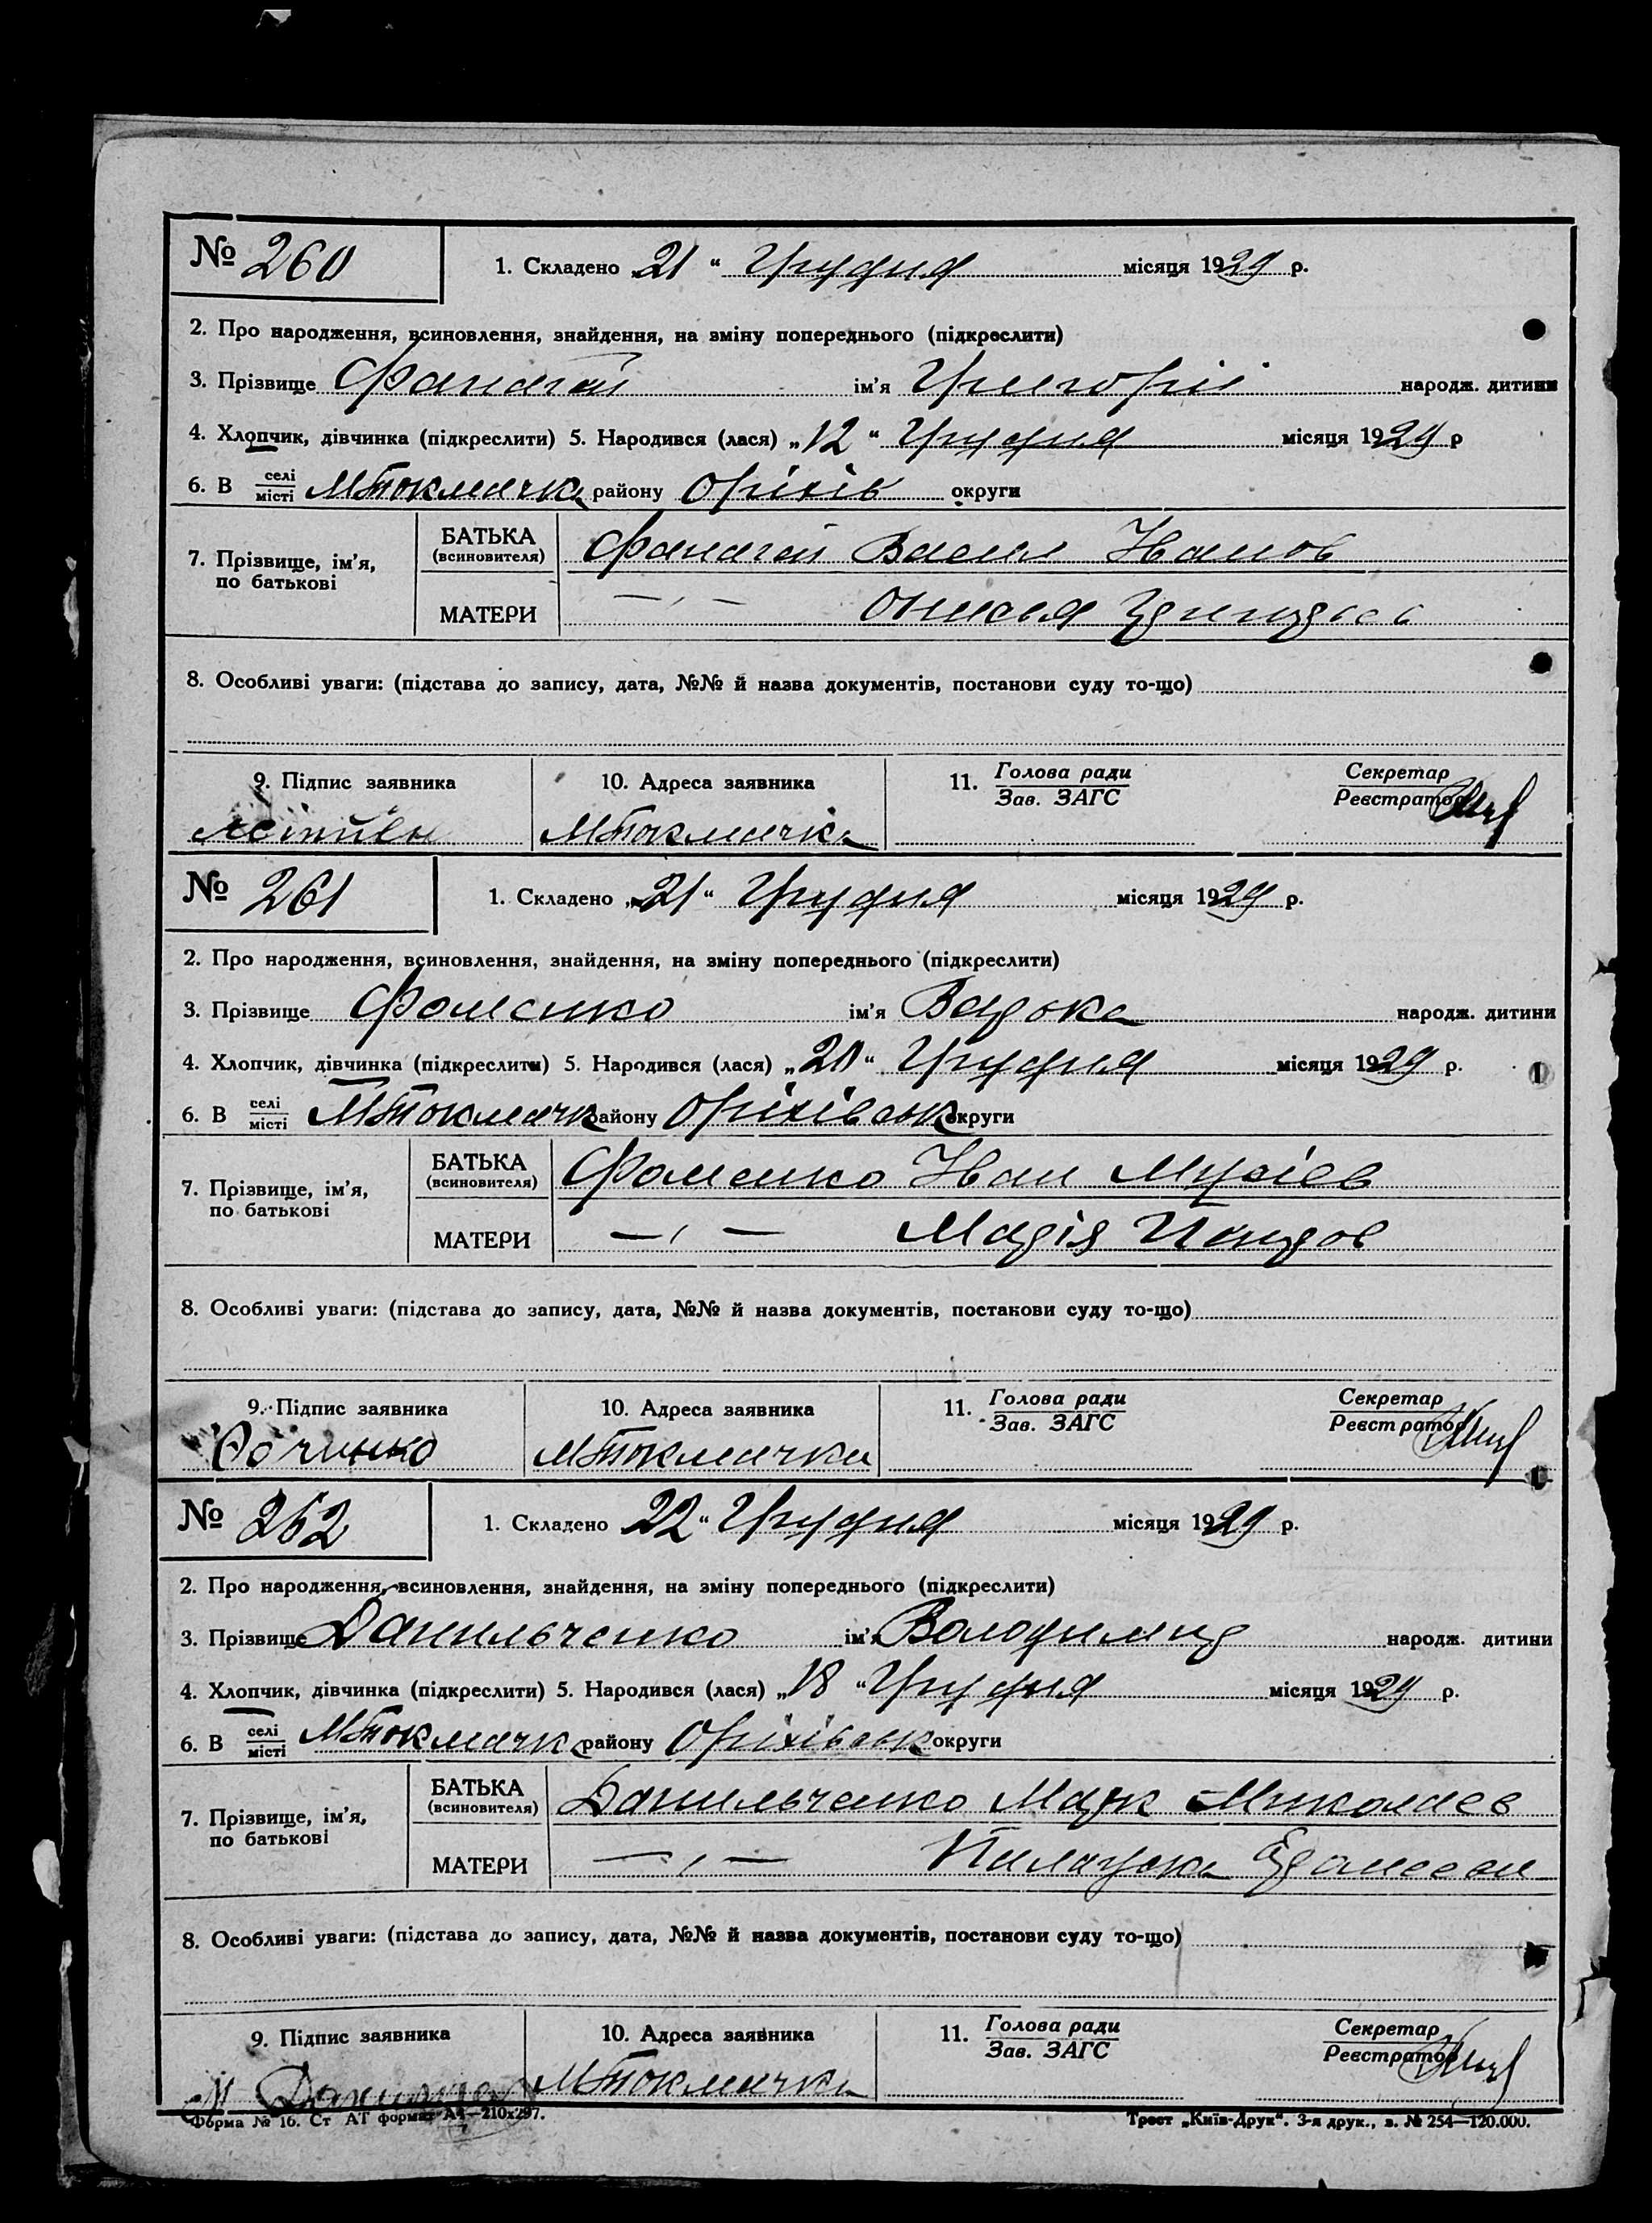 № 260
1. Складено 21 “ Грудня місяця 1929 р.
2. Про народження, всиновлення, знайдення, на зміну попереднього (підкреслити)
3. Прізвище Фанагей ім’я Григорій народж. дитини
4. Хлопчик, дівчинка (підкреслити) 5. Народився (лася) „ 12 “ Грудня місяця 1929 р
6. В селі/місті МТокмачка району Оріхів округи
7. Прізвище, ім’я, по батькові
БАТЬКА (всиновителя) Фанагей Васил Иванов
МАТЕРИ —„— Онисья
8. Особливі уваги: (підстава до запису, дата, №№ й назва документів, постанови суду то-що)
9. Підпис заявника 10. Адреса заявника 11. Голова ради/Зав. ЗАГС Секретар/Реєстратор
МТокмачка
№ 261
1. Складено „ 21 “ Грудня місяця 1929 р.
2. Про народження, всиновлення, знайдення, на зміну попереднього (підкреслити)
3. Прізвище Фоменко ім’я Варька народж. дитини
4. Хлопчик, дівчинка (підкреслити) 5. Народився (лася) „ 20 “ Грудня місяця 1929 р.
6. В селі/місті МТокмачк району Оріхівськ округи
7. Прізвище, ім’я, по батькові
БАТЬКА (всиновителя) Фоменко Иван Мусіев
МАТЕРИ —„— Марія
8. Особливі уваги: (підстава до запису, дата, №№ й назва документів, постанови суду то-що)
9. Підпис заявника 10. Адреса заявника 11. Голова ради/Зав. ЗАГС Секретар/Реєстратор
МТокмачка
№ 262
1. Складено 22 “ Грудня місяця 1929 р.
2. Про народження, всиновлення, знайдення, на зміну попереднього (підкреслити)
3. Прізвище Данильченко ім’я Володимир народж. дитини
4. Хлопчик, дівчинка (підкреслити) 5. Народився (лася) „ 18 “ Грудня місяця 1929 р.
6. В селі/місті МТокмачк району Оріхівськ округи
7. Прізвище, ім’я, по батькові
БАТЬКА (всиновителя) Данильченко Марк Миколаев
МАТЕРИ —„— Пилажка
8. Особливі уваги: (підстава до запису, дата, №№ й назва документів, постанови суду то-що)
9. Підпис заявника 10. Адреса заявника 11. Голова ради/Зав. ЗАГС Секретар/Реєстратор
МТокмачка
Форма № 16. Ст АТ формат А4—210x297. Трест „Київ-Друк“. 3-я друк., з. № 254—120.000.